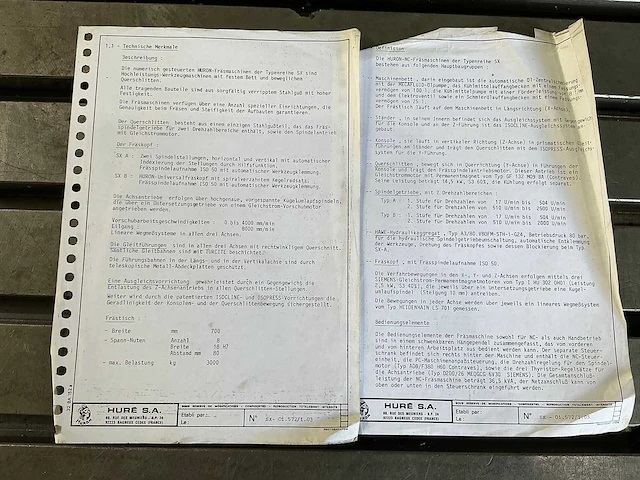 1.3 - Technische Merkmale
Beschreibung :
Die numerisch gesteuerten HURON-Fräsmaschinen der Typenreihe SX sind
Hochleistungs-Werkzeugmaschinen mit festem Bett und beweglichen
Querschlitten.
Alle tragenden Bauteile sind aus sorgfältig verripptem Stahlguß mit hoher
Festigkeit.
Die Fräsmaschinen verfügen über eine Anzahl spezieller Einrichtungen, die
Genauigkeit beim Fräsen und Steifigkeit der Aufbauten garantieren.
Der Querschlitten besteht aus einem einzigen Stahlgußteil, das das Fräs-
spindelgetriebe für zwei Drehzahlbereiche enthält, sowie den Spindelantrieb
mit Gleichstrommotor.
Der Fräskopf :
SX A : Zwei Spindelstellungen, horizontal und vertikal mit automatischer
Indexierung der Stellungen durch Hilfsfunktion.
Frässpindelaufnahme ISO 50 mit automatischer Werkzeugklemmung.
SX B : HURON-Universalfräskopf mit spiralverzahntem Kegelradsatz.
Frässpindelaufnahme ISO 50 mit automatischer Werkzeugklemmung.
Die Achsantriebe erfolgen über hochgenaue, vorgespannte Kugelumlaufspindeln,
die über ein Untersetzungsgetriebe von einem Gleichstrom-Vorschubmotor
angetrieben werden.
Vorschubarbeitsgeschwindigkeiten 0 bis 4000 mm/min
Eilgang 8000 mm/min
Lineare Wegmeßsysteme in allen drei Achsen.
Die Gleitführungen sind in allen drei Achsen mit rechtwinkligem Querschnitt.
Sämtliche Gleitbahnen sind mit TURCITE beschichtet.
Die Führungsbahnen in der Längs- und in der Vertikalachse sind durch
teleskopische Metall-Abdeckplatten geschützt.
Eine Ausgleichsvorrichtung gewährleistet durch ein Gegengewicht die
Entlastung des Z-Achsenantriebs in allen Querschlitten-Stellungen.
Weiter wird durch die patentierten ISOCLINE- und ISOPRESS-Vorrichtungen die
Geradlinigkeit der Konsolen- und der Querschlittenbewegung sichergestellt.
Frästisch :
- Breite mm 700
- Spann-Nuten Anzahl 8
Breite 18 H7
Abstand mm 80
- max. Belastung kg 3000
HURÉ S.A.
98, RUE DES MEUNIERS - B.P. 24
92223 BAGNEUX CEDEX (FRANCE)
SOUS RESERVE DE MODIFICATIONS - CONFIDENTIEL - REPRODUCTION TOTALEMENT INTERDITE
Etabli par:
Le:
N° SX- 01.572/1.03
Definition
Die HURON-NC-Fräsmaschinen der Typenreihe SX
bestehen aus folgenden Hauptbaugruppen :
- Maschinenbett , darin eingebaut ist die automatische Öl-Zentralschmierung
mit der Öldipumpe, das Kühlmittelauffangbecken mit einem Fassungs-
vermögen von 100 l, die Kühlmittelpumpe mit einer Förderleistung
und dem Elektroventil sowie ein Schmiermittelauffangbecken mit einem Fassungs-
vermögen von 25 l.
Der Frästisch läuft auf dem Maschinenbett in Längsrichtung (X-Achse).
- Ständer , in seinem Innern befindet sich das Ausgleichsystem mit Gegengewicht
für die Konsole und an der Z-Führung ist das ISOCLINE-Ausgleichssystem
gebaut.
- Konsole , sie läuft in vertikaler Richtung (Z-Achse) in prismatischen
Führungen am Ständer und trägt den Querschlitten mit dem ISOPRESS-Ausgleichs-
system.
- Querschlitten , bewegt sich in Querrichtung (Y-Achse) in Führungen der
Konsole und trägt den Frässpindelantrieb. Dieser Antrieb ist ein
Gleichstrommotor mit Permanentmagneten vom Typ GF 132 (CONTRAVES),
Leistung beträgt 14,5 kW, S3 60%, die Kühlung erfolgt separat.
- Spindelgetriebe, mit 2 Drehzahlbereichen :
Typ A : 1. Stufe für Drehzahlen von 17 U/min bis 504 U/min
2. Stufe für Drehzahlen von 510 U/min bis 2500 U/min
Typ B : 1. Stufe für Drehzahlen von 17 U/min bis 504 U/min
2. Stufe für Drehzahlen von 510 U/min bis 2000 U/min
- HAWE-Hydraulikaggregat , Betriebsdruck 80 bar,
für die hydraulische Spindelgetriebeumschaltung, automatische Entklemmung
der Werkzeuge, Drehung des Fräskopfes sowie dessen Blockierung beim Typ
SX-A.
- Fräskopf , mit Frässpindelaufnahme ISO 50.
Die Verfahrbewegungen in den X-, Y- und Z-Achsen erfolgen mittels drei
SIEMENS-Gleichstrom-Permanentmagnetmotoren vom Typ 1 HU 302 (Leistung
2,5 kW, S3 40%), die jeweils über ein Untersetzungsgetriebe auf eine Kugelum-
laufspindel (Steigung 10 mm) antreiben.
Die Bewegungen in jeder Achse werden über jeweils ein lineares Wegmeßsystem
vom Typ HEIDENHAIN LS 701 gemessen.
Bedienungselemente
Die Bedienungselemente der Fräsmaschine sowohl für NC- als auch Handbetrieb
sind in einem schwenkbaren Hängependel zusammengefaßt, das vom vorderen
und vom hinteren Arbeitsplatz aus bedient werden kann. Der separate Steuer-
schrank befindet sich rechts hinter der Maschine und enthält die NC-Steuer-
einheit, die PC-Maschinenanpaßsteuerung, die Drehzahlregelung für den Spindel-
motor (Typ ADB/F380 H60 Contraves), sowie die drei Thyristor-Regelsätze für
die Achsantriebe SIEMENS). Die Gesamtanschluß-
leistung der NC-Fräsmaschine beträgt 36,5 kVA, der Netzanschluß kann von
oben oder unten in den Steuerschrank eingeführt werden.
HURÉ S.A.
98, RUE DES MEUNIERS - B.P. 24
92223 BAGNEUX CEDEX (FRANCE)
SOUS RESERVE DE MODIFICATIONS - CONFIDENTIEL - REPRODUCTION TOTALEMENT INTERDITE
Etabli par:
Le:
N° SX - 01.572/1.03